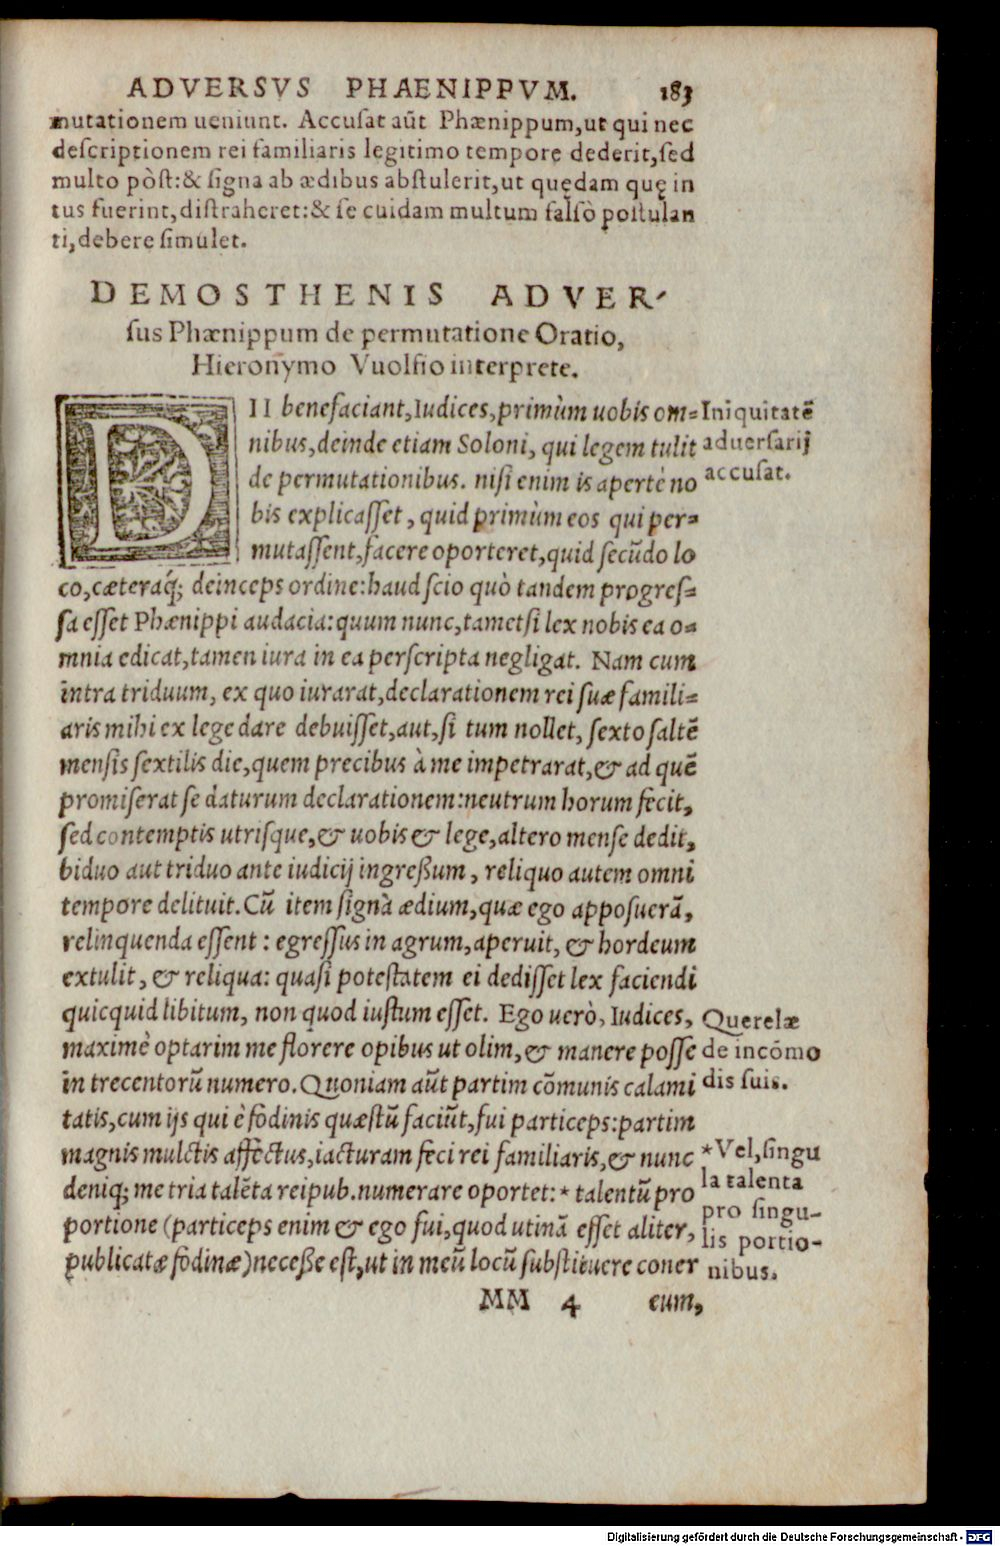 ADVERSVS PHAENIPPVM. 183
mutationem ueniunt. Accusat aūt Phænippum, ut qui nec
descriptionem rei familiaris legitimo tempore dederit, sed
multo pòst: & signa ab ædibus abstulerit, ut quędam quę in
tus fuerint, distraheret: & se cuidam multum falsò postulan
ti, debere simulet.
DEMOSTHENIS ADVER-
sus Phænippum de permutatione Oratio,
Hieronymo Vuolfio interprete.
DII benefaciant, Iudices, primùm uobis om-
nibus, deinde etiam Soloni, qui legem tulit
de permutationibus. nisi enim is apertè no
bis explicasset, quid primùm eos qui per-
mutassent, facere oporteret, quid secūdo lo
co, cæteraq́; deinceps ordine: haud scio quò tandem progres-
sa esset Phænippi audacia: quum nunc, tametsi lex nobis ea o-
mnia edicat, tamen iura in ea perscripta negligat. Nam cum
intra triduum, ex quo iurarat, declarationem rei suæ famili-
aris mihi ex lege dare debuisset, aut, si tum nollet, sexto saltē
mensis sextilis die, quem precibus à me impetrarat, & ad quē
promiserat se daturum declarationem: neutrum horum fecit,
sed contemptis utrisque, & uobis & lege, altero mense dedit,
biduo aut triduo ante iudicij ingreßum, reliquo autem omni
tempore delituit. Cū item signà ædium, quæ ego apposuerā,
relinquenda essent: egressus in agrum, aperuit, & hordeum
extulit, & reliqua: quasi potestatem ei dedisset lex faciendi
quicquid libitum, non quod iustum esset. Ego uerò, Iudices,
maximè optarim me florere opibus ut olim, & manere posse
in trecentorū numero. Quoniam aūt partim cōmunis calami
tatis, cum ijs qui è fodinis quæstū faciūt, fui particeps: partim
magnis mulctis affectus, iacturam feci rei familiaris, & nunc
deniq; me tria talēta reipub. numerare oportet: * talentū pro
portione (particeps enim & ego fui, quod utinā esset aliter,
publicatæ fodinæ) neceße est, ut in meū locū substituere coner
MM 4 eum,
Iniquitatē
aduersarij
accusat.
Querelæ
de incōmo
dis suis.
*Vel, singu
la talenta
pro singu-
lis portio-
nibus.
Digitalisierung gefördert durch die Deutsche Forschungsgemeinschaft - DFG